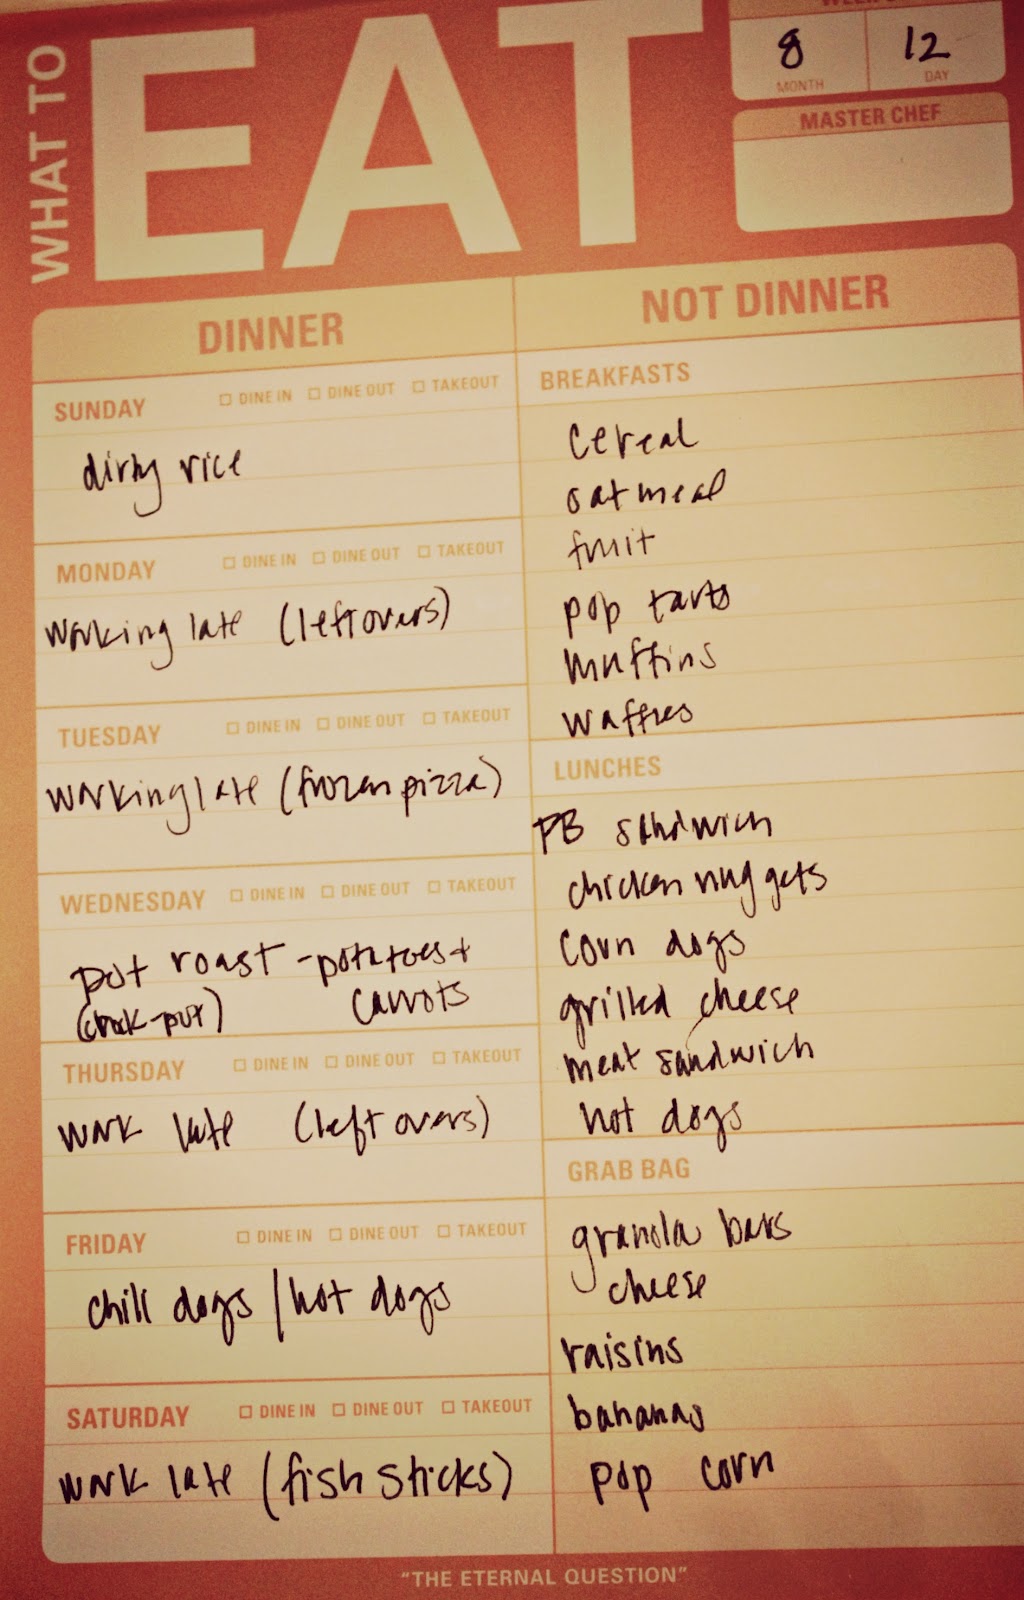 WHAT TO
EAT
8
12
MONTH
DAY
MASTER CHEF
DINNER
SUNDAY
DINE IN DINE OUT TAKEOUT
dirty rice
MONDAY
DINE IN DINE OUT TAKEOUT
working late (leftovers)
TUESDAY
DINE IN DINE OUT TAKEOUT
working late (frozen pizza)
WEDNESDAY
DINE IN DINE OUT TAKEOUT
pot roast - potatoes +
(crock-pot) carrots
THURSDAY
DINE IN DINE OUT TAKEOUT
work late (leftovers)
FRIDAY
DINE IN DINE OUT TAKEOUT
chili dogs / hot dogs
SATURDAY
DINE IN DINE OUT TAKEOUT
work late (fish sticks)
NOT DINNER
BREAKFASTS
cereal
oatmeal
fruit
pop tarts
muffins
waffles
LUNCHES
PB sandwich
chicken nuggets
corn dogs
grilled cheese
meat sandwich
hot dogs
GRAB BAG
granola bars
cheese
raisins
bananas
pop corn
"THE ETERNAL QUESTION"